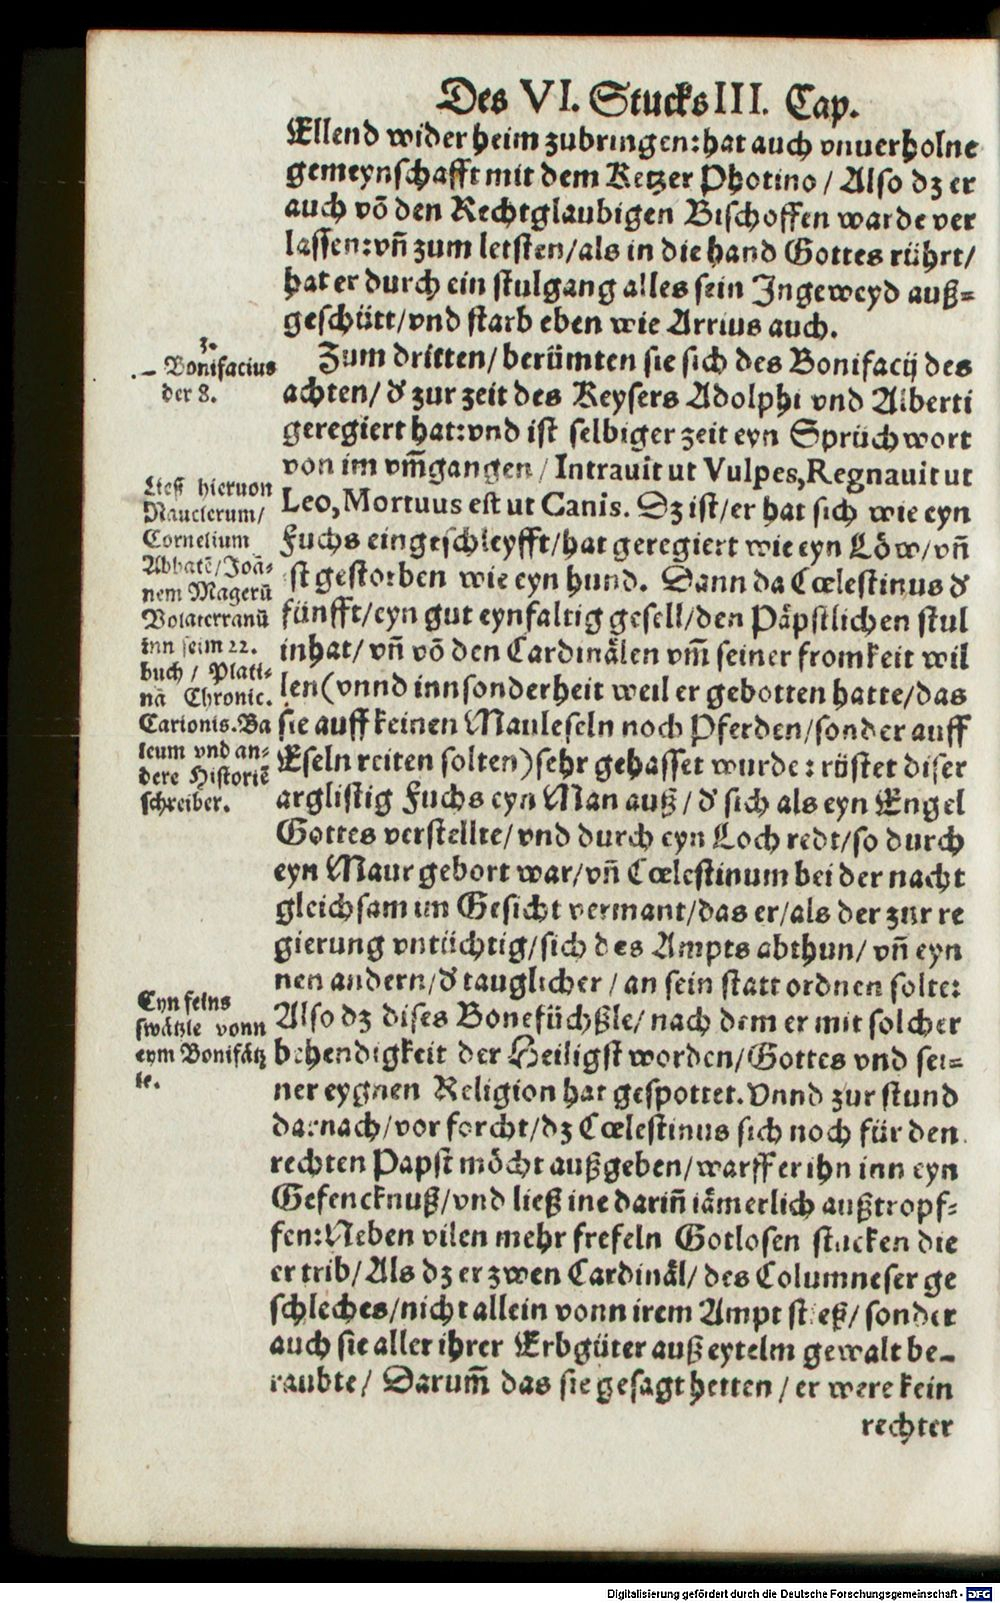 Des VI. Stucks III. Cap.
Ellend wider heim zubringen: hat auch vnuerholne
gemeynschafft mit dem Ketzer Photino / Also dz er
auch võ den Rechtglaubigen Bischoffen warde ver
lassen: vñ zum letsten / als in die hand Gottes rührt /
hat er durch ein stulgang alles sein Ingeweyd auß=
geschütt / vnd starb eben wie Arrius auch.
3.
Bonifacius
der 8.
Zum dritten / berümten sie sich des Bonifacij des
achten / d' zur zeit des Keysers Adolphi vnd Alberti
geregiert hat: vnd ist selbiger zeit eyn Sprüchwort
von im vm̃gangen / Intrauit ut Vulpes, Regnauit ut
Leo, Mortuus est ut Canis. Dz ist / er hat sich wie eyn
Fuchs eingeschleyfft / hat geregiert wie eyn Löw / vñ
ist gestorben wie eyn hund. Dann da Cœlestinus d'
fünfft / eyn gut eynfaltig gesell / den Päpstlichen stul
inhat / vñ võ den Cardinälen vm̃ seiner fromkeit wil
len (vnnd innsonderheit weil er gebotten hatte / das
sie auff keinen Mauleseln noch Pferden / sonder auff
Eseln reiten solten) sehr gehasset wurde: rüstet diser
arglistig Fuchs eyn Man auß / d' sich als eyn Engel
Gottes verstellte / vnd durch eyn Loch redt / so durch
eyn Maur gebort war / vñ Cœlestinum bei der nacht
gleichsam im Gesicht vermant / das er / als der zur re
gierung vntüchtig / sich des Ampts abthun / vñ eyn
nen andern / d' tauglicher / an sein statt ordnen solte:
Also dz dises Bonefüchßle / nach dem er mit solcher
behendigkeit der Heiligst worden / Gottes vnd sei=
ner eygnen Religion hat gespottet. Vnnd zur stund
darnach / vor forcht / dz Cœlestinus sich noch für den
rechten Papst möcht außgeben / warff er ihn inn eyn
Gefencknuß / vnd ließ ine dariñ iämerlich außtropf=
fen: Neben vilen mehr frefeln Gotlosen stucken die
er trib / Als dz er zwen Cardinäl / des Columneser ge
schleches / nicht allein vonn irem Ampt stieß / sonder
auch sie aller ihrer Erbgüter auß eytelm gewalt be=
raubte / Darum̃ das sie gesagt hetten / er were kein
rechter
Liess hieruon
Nauclerum /
Cornelium
Abbatẽ / Joã=
nem Magerũ
Volaterranũ
inn seim 22.
buch / Plati=
nã Chronic.
Carionis. Ba
leum vnd an=
dere Historiẽ
schreiber.
Eyn feins
swätzle vonn
eym Bonifätz
le.
Digitalisierung gefördert durch die Deutsche Forschungsgemeinschaft - DFG